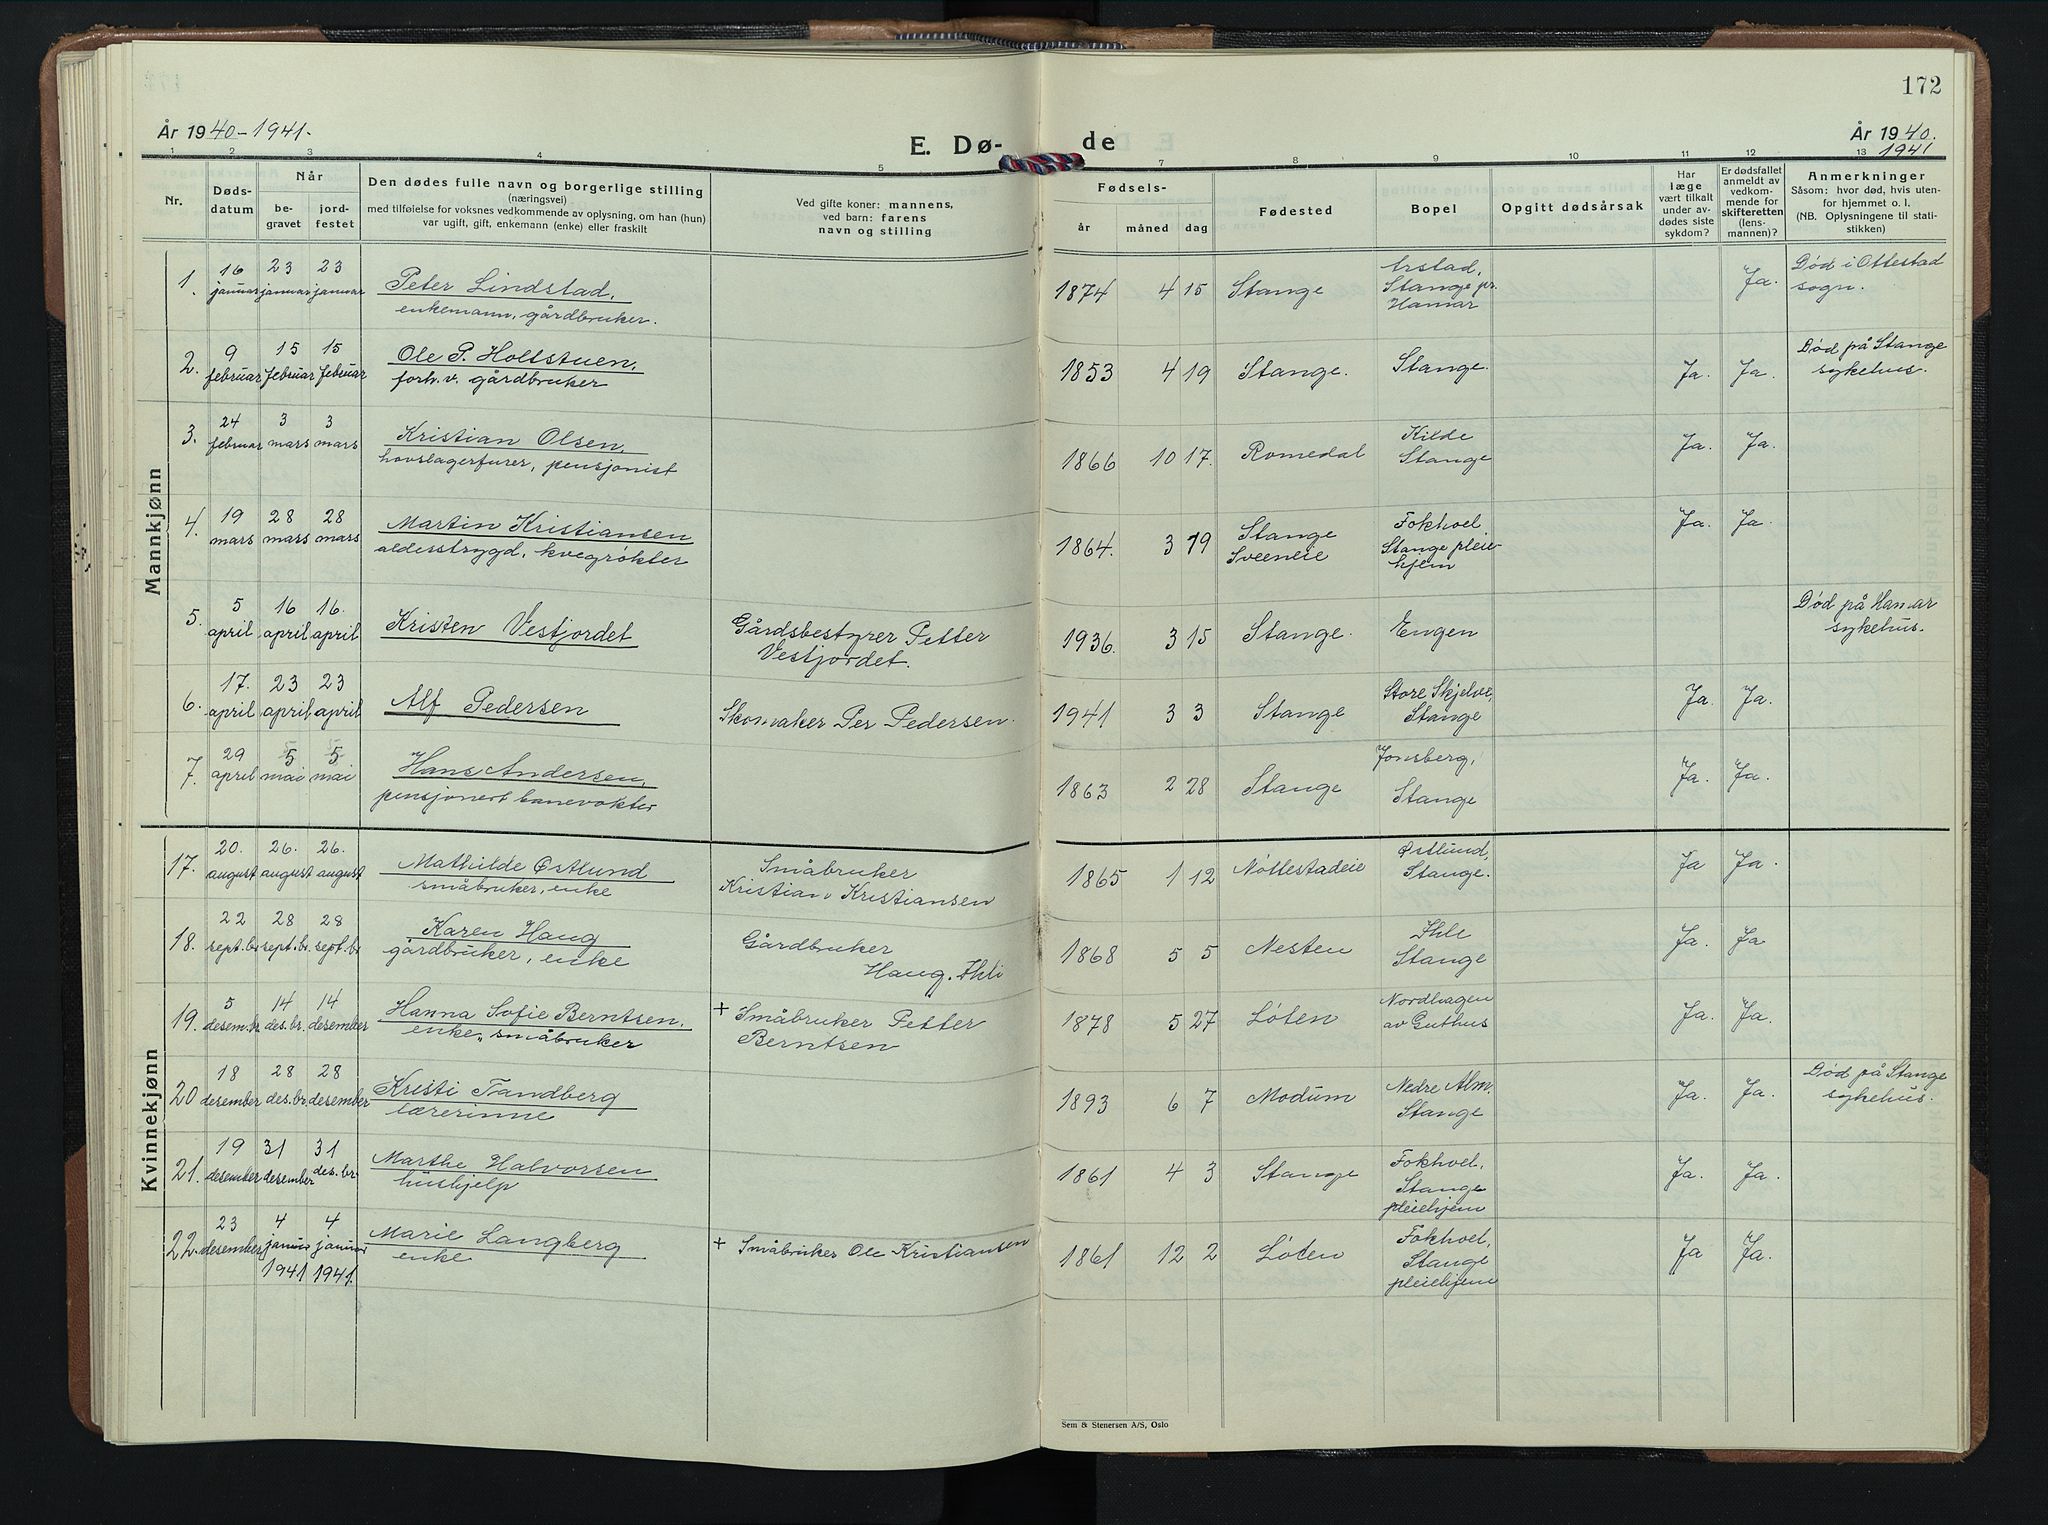 172
År 1940-1941.
E. Døde
År 1940.
1941
1 2 3 4 5 7 8 9 10 11 12 13
Nr.
Døds-
datum
Når
be-
gravet
jord-
festet
Den dødes fulle navn og borgerlige stilling
(næringsvei)
med tilføielse for voksnes vedkommende av oplysning, om han (hun)
var ugift, gift, enkemann (enke) eller fraskilt
Ved gifte koner: mannens,
ved barn: farens
navn og stilling
Fødsels-
år måned dag
Fødested
Bopel
Opgitt dødsårsak
Har
læge
vært tilkalt
under av-
dødes siste
sykdom?
Er dødsfallet
anmeldt av
vedkom-
mende for
skifteretten
(lens-
mannen)?
Anmerkninger
Såsom: hvor død, hvis uten-
for hjemmet o. l.
(NB. Oplysningene til stati-
stikken)
Mannkjønn
1. 16 januar 23 januar 23 januar Peter Lindstad, 1874 4 15 Stange Arstad, Stange pr. Hamar Ja. Død i Ottestad sogn.
enkemann, gårdbruker.
2. 9 februar 15 februar 15 februar Ole P. Holtstuen, 1853 4 19 Stange. Stange. Ja. Ja. Død på Stange sykehus.
forh.v. gårdbruker
3. 24 februar 3 mars 3 mars Kristian Olsen, 1866 10 17. Romedal Kilde Stange Ja. Ja.
hovslagerfurer, pensjonist
4. 19 mars 28 mars 28 mars Martin Kristiansen 1864. 3 19 Stange Sveeneie Fokhoel, Stange pleiehjem Ja. Ja.
alderstrygd, kvegrøkter
5. 5 april 16 april 16. april Kristen Vestjordet Gårdsbestyrer Petter Vestjordet. 1936. 3 15 Stange. Engen Død på Hamar sykehus.
6. 17. april 23 april 23 april Alf Pedersen Skomaker Per Pedersen. 1941 3 3 Stange Store Skjelve, Stange Ja. Ja.
7. 29 april 5 mai 5 mai Hans Andersen, 1863 2 28 Stange Jonsberg, Stange Ja. Ja.
pensjonert banevokter
Kvinnekjønn
17. 20. august 26. august 26. august Mathilde Østlund Småbruker Kristian Kristiansen 1865 1 12 Nøttestadeie Østlund, Stange. Ja Ja.
småbruker, enke
18. 22 sept.br. 28 sept.br. 28 sept.br. Karen Haug Gårdbruker Haug, Ihli 1868 5 5 Nesten Ihle Stange Ja. Ja
gårdbruker, enke
19. 5 desem.br 14 des.br. 14 desember Hanna Sofie Berntsen, + Småbruker Petter Berntsen 1878 5 27 Løten Nordhagen av Guthus Ja. Ja.
enke, småbruker
20 18 desember 28 des.br. 28 desember Kristi Tandberg 1893 6 7 Modum Nedre Alm, Stange Ja. Ja. Død på Stange sykehus.
lærerinne
21. 19 desember 31 desember 31 des.br. Marthe Halvorsen 1861 4 3 Stange Fokhoel, Stange pleiehjem Ja. Ja.
hushjelp
22. 23 desember 4 januar 1941 4 januar 1941. Marie Langberg + Småbruker Ole Kristiansen 1861 12 2 Løten Fokhoel, Stange pleiehjem Ja Ja.
enke
Sem & Stenersen A/S, Oslo